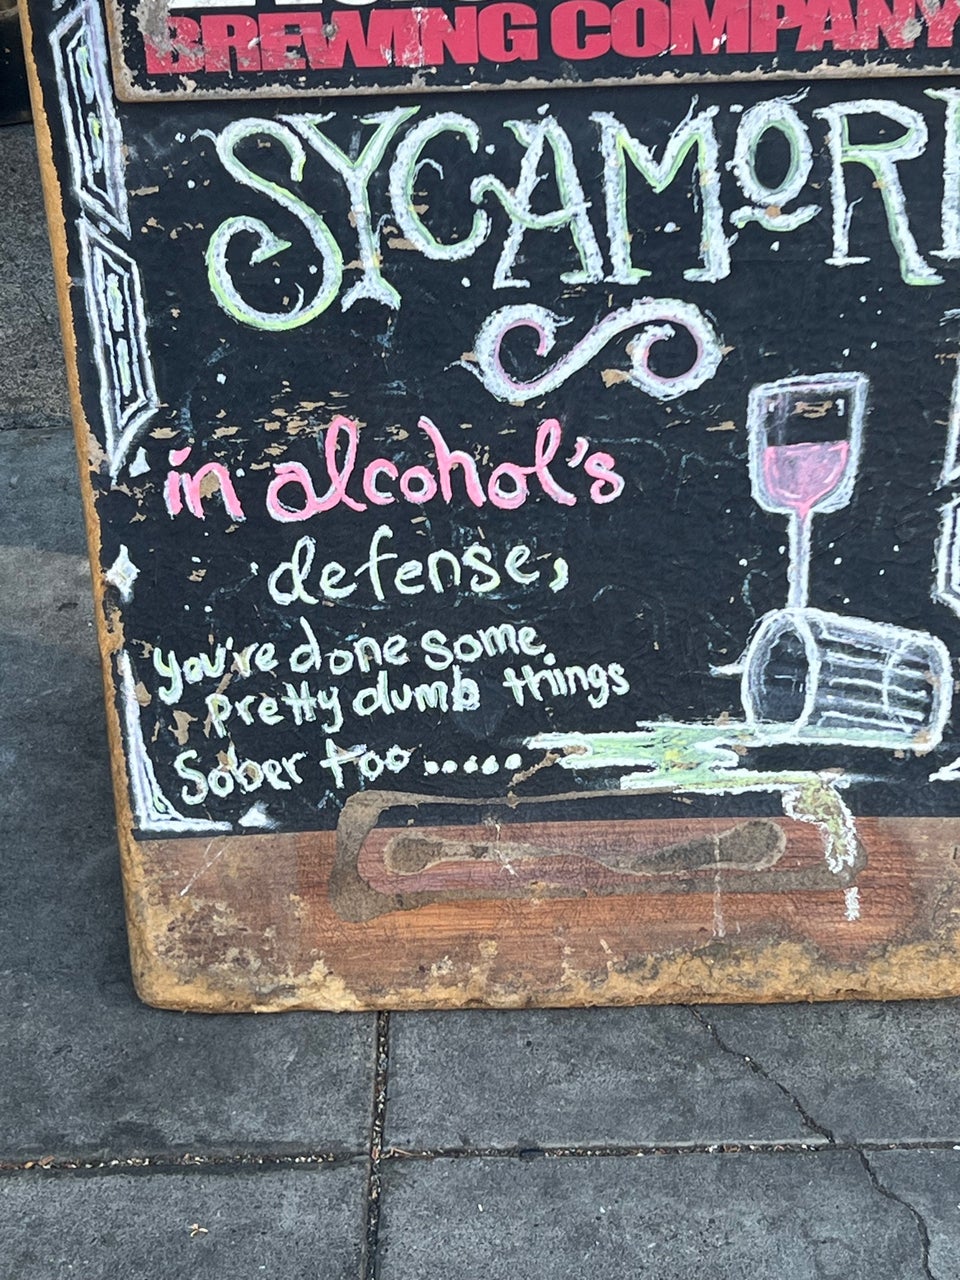 BREWING COMPANY
SYCAMORE
in alcohol's
defense,
you're done some
pretty dumb things
Sober too.....